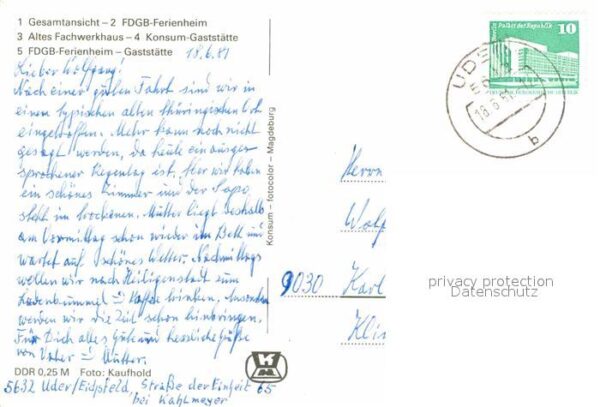 1 Gesamtansicht – 2 FDGB-Ferienheim
3 Altes Fachwerkhaus – 4 Konsum-Gaststätte
5 FDGB-Ferienheim – Gaststätte 18.6.81
Lieber Wolfgang!
Nach einer guten Fahrt sind wir in
einem typischen alten thüringischen Loch
eingetroffen. Mehr kann noch nicht
gesagt werden, da heute ein ausge-
sprochener Regentag ist. Hier wir haben
ein schönes Zimmer und der Sapo
steht im trockenen. Mutter liegt deshalb
am Vormittag schon wieder im Bett und
wartet auf schönes Wetter. Nachmittags
wollen wir nach Heiligenstadt zum
Ladenbummel u. Kaffee trinken. Ansonsten
werden wir die Zeit schon hinbringen.
Für Dich alles Gute und herzliche Grüße
von Vater u. Mutter.
DDR 0,25 M Foto: Kaufhold
5632 Uder/Eichsfeld, Straße der Einheit 65
bei Kahlmeyer
Konsum – fotocolor – Magdeburg
Berlin Palast der Republik 10
UDER
18.6.81
b
Herrn
Wolf
9030 Karl
Klin
privacy protection
Datenschutz